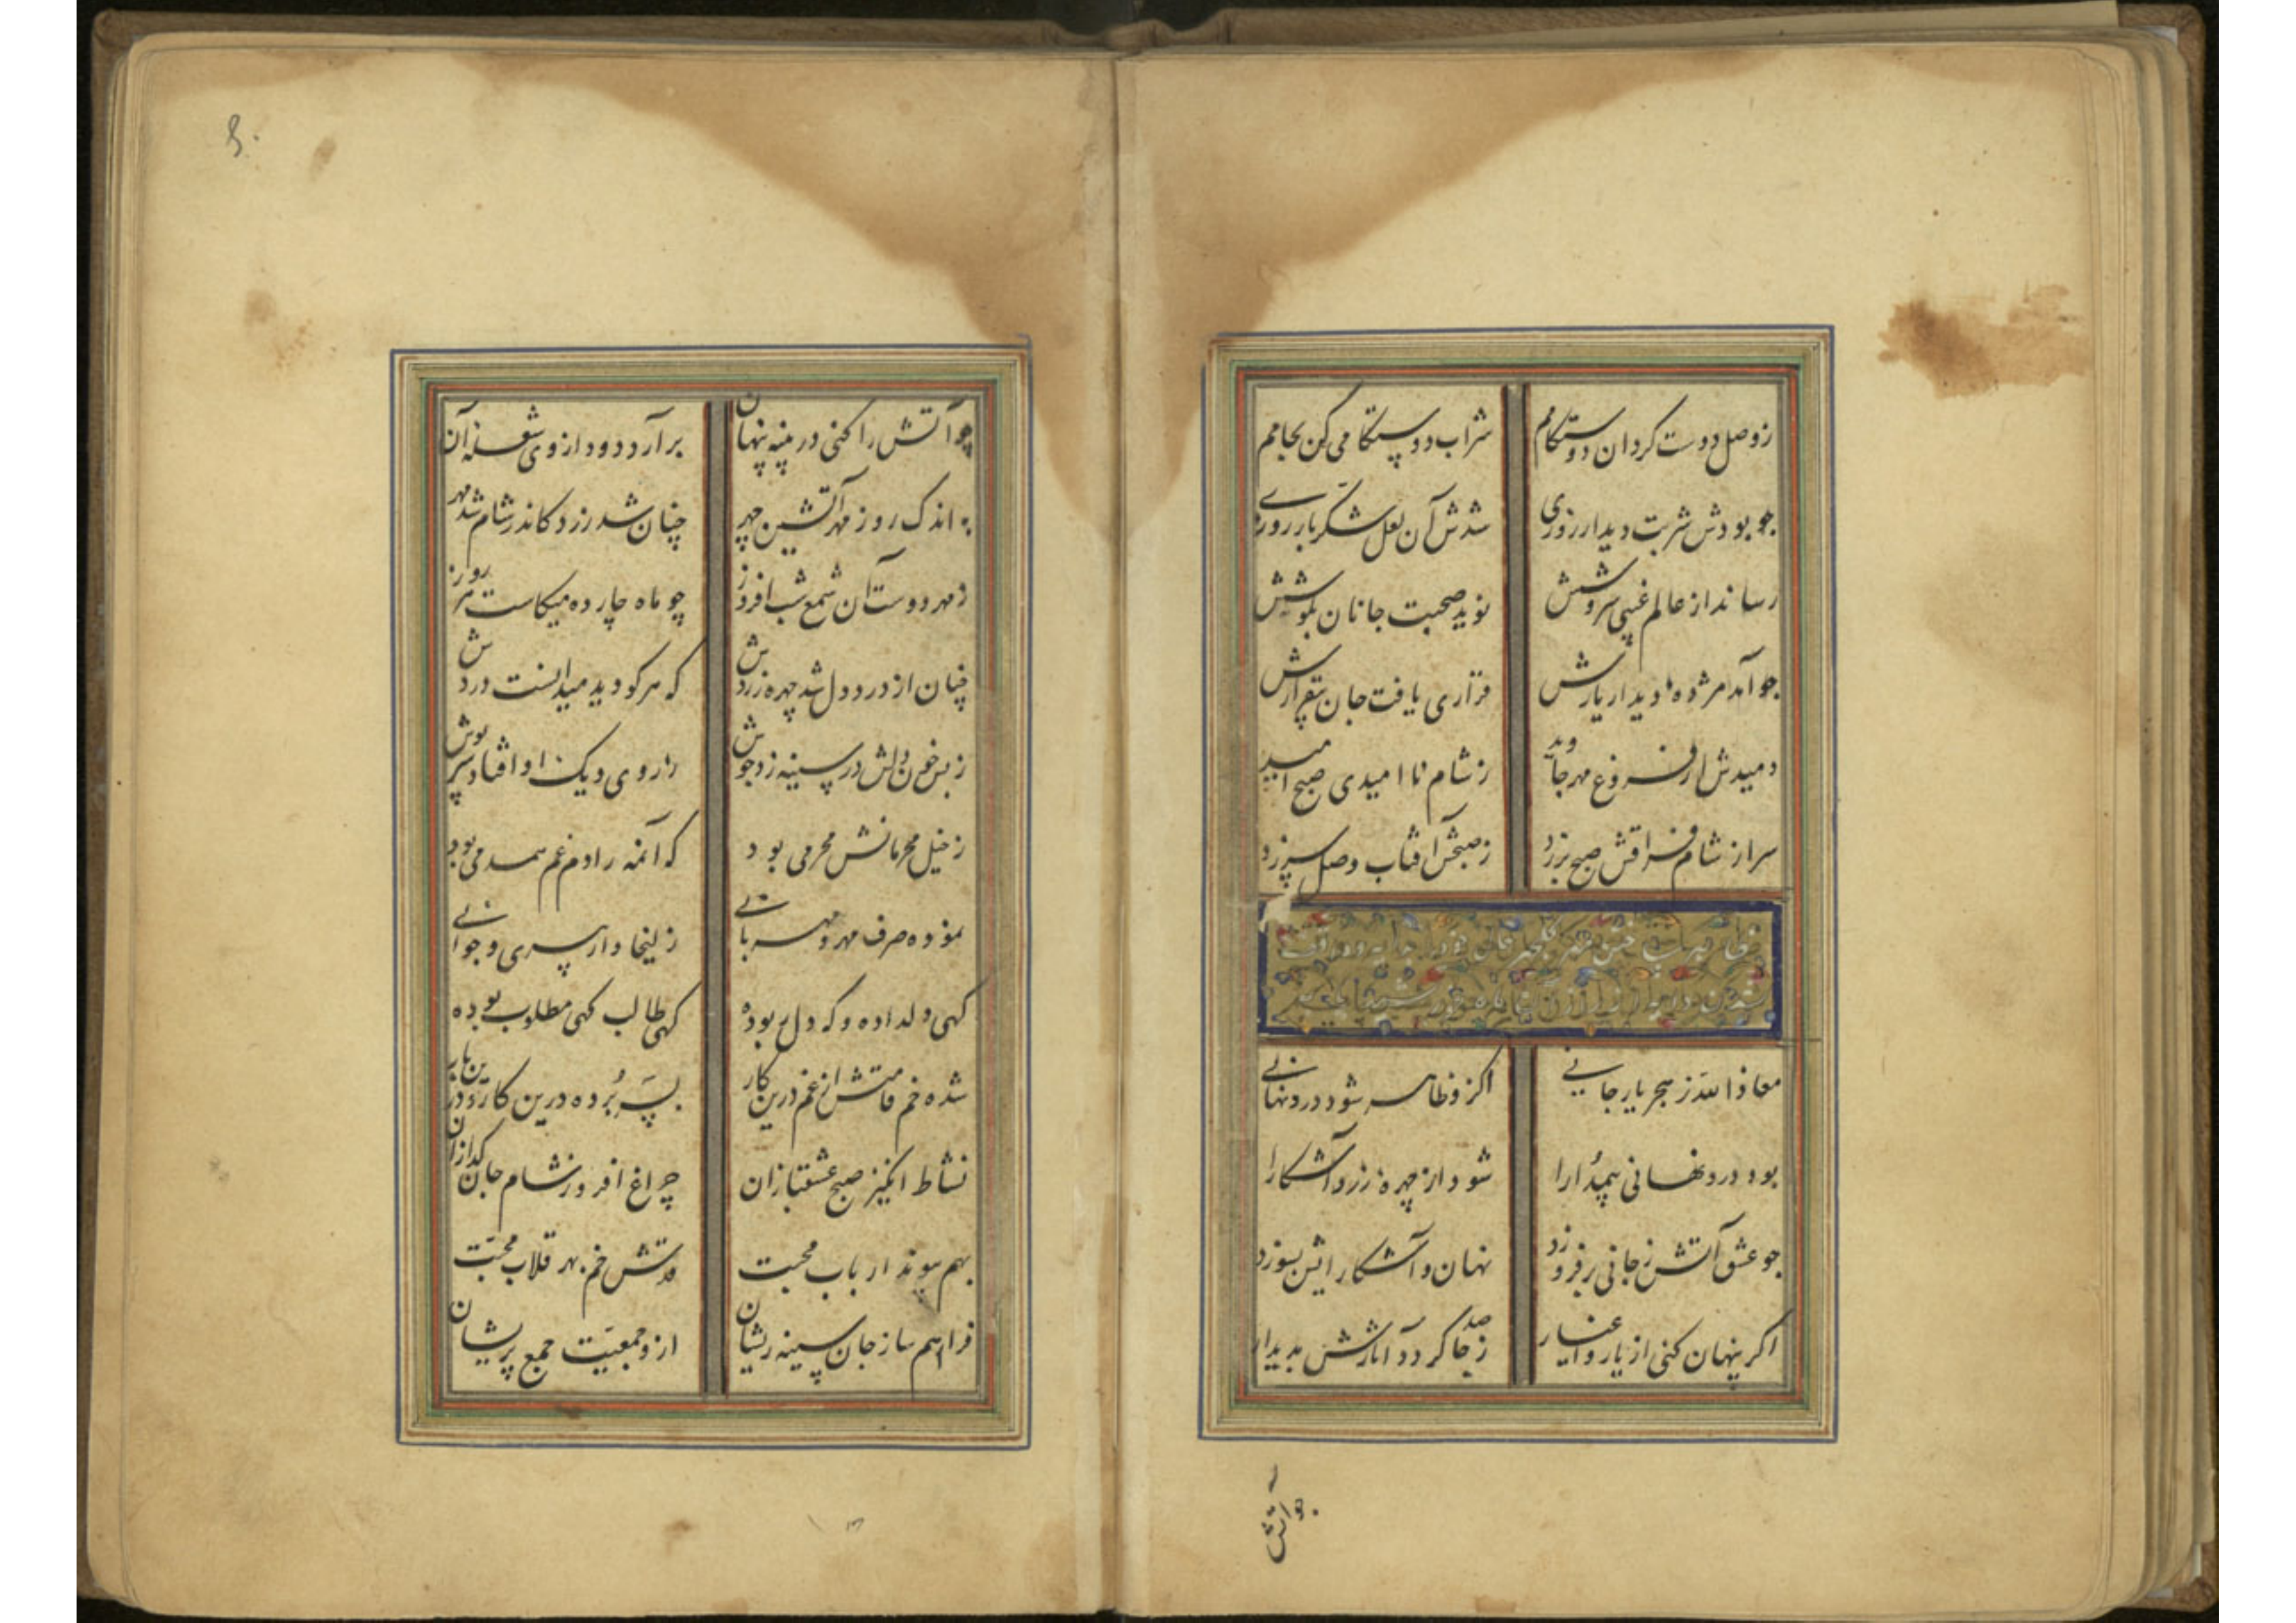 ز وصل دوست کردان دوستکامم شراب دوستکامی کن بجامم
جو بودش شربت دیدار روزی شدش آن لعل شکربار روزی
رساند از عالم غیبی سروشش نوید صحبت جانان بکوشش
جو آمد مژده دیدار یارش قراری یافت جان بیقرارش
دمیدش از فروغ مهر جاوید ز شام نا امیدی صبح امید
سر از شام فراقش صبح برزد ز صبحش آفتاب وصل سرزد
معاذ الله ز هجر یار جانی کزو ظاهر شود درد نهانی
بود درد نهانی
شود از چهره زرد آشکارا
جو عشق آتش ز جانی برفروزد نهان و آشکارایش بسوزد
اکر پنهان کنی از یار و اغیار ز صد جا کردد آثارش بدیدار
جو آتش
۵۰
چو آتش را کنی در پنبه پنهان برآرد دود از وی شعله آن
به اندک روز مهر آتشین چهر چنان شد زرد کاندر شام شد مهر
ز مهر دوست آن شمع شب افروز چو ماه چارده میکاست هر روز
چنان از درد دل شد چهره زردش که هر کو دید میدانست دردش
ز بس خون دلش در سینه زد جوش
افتاد سرپوش
ز خیل محرمانش محرمی بود که آنمه را دم غم همدمی بود
نموده صرف مهر و مهربانی زلیخا وار پیری و جوانی
کهی دلداده و که دلبر بوده کهی طالب کهی مطلوب بوده
شده خم قامتش از غم درین کار بسر برده درین کار
نشاط انکیز صبح عشقبازان چراغ افروز شام جان کدازان
بهم پیوند ارباب محبت قدش خم بهر قلاب محبت
فراهم ساز جان سینه ریشان ازو جمعیت جمع پریشان